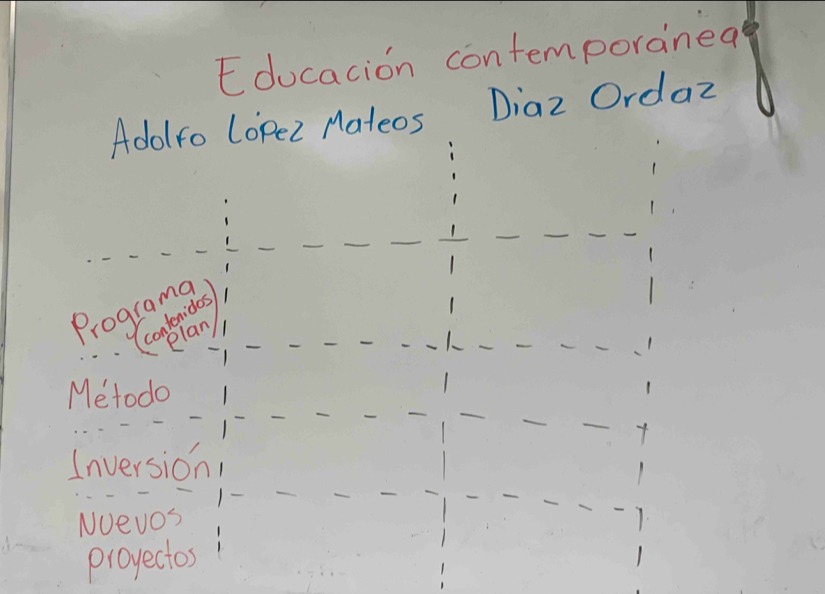 Educación contemporánea
Adolfo López Mateos Diaz Ordaz
Programa
(contenidos)
(plan)
Método
Inversión
Nuevos
proyectos